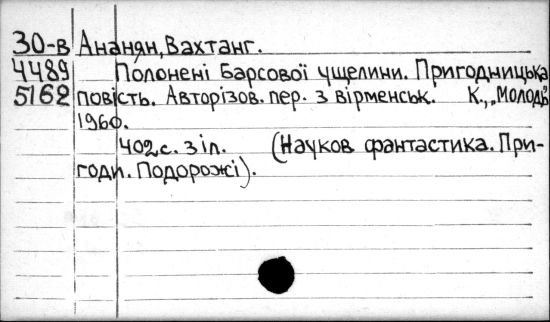 30-в Ананян, Вахтанг.
4489 Полонені Барсової ущелини. Пригодницька
5162 повість. Авторізов. пер. з вірменськ. К., „Молодь"
1960.
402 с. з іл. (Науков фантастика. При-
годи. Подорожі).